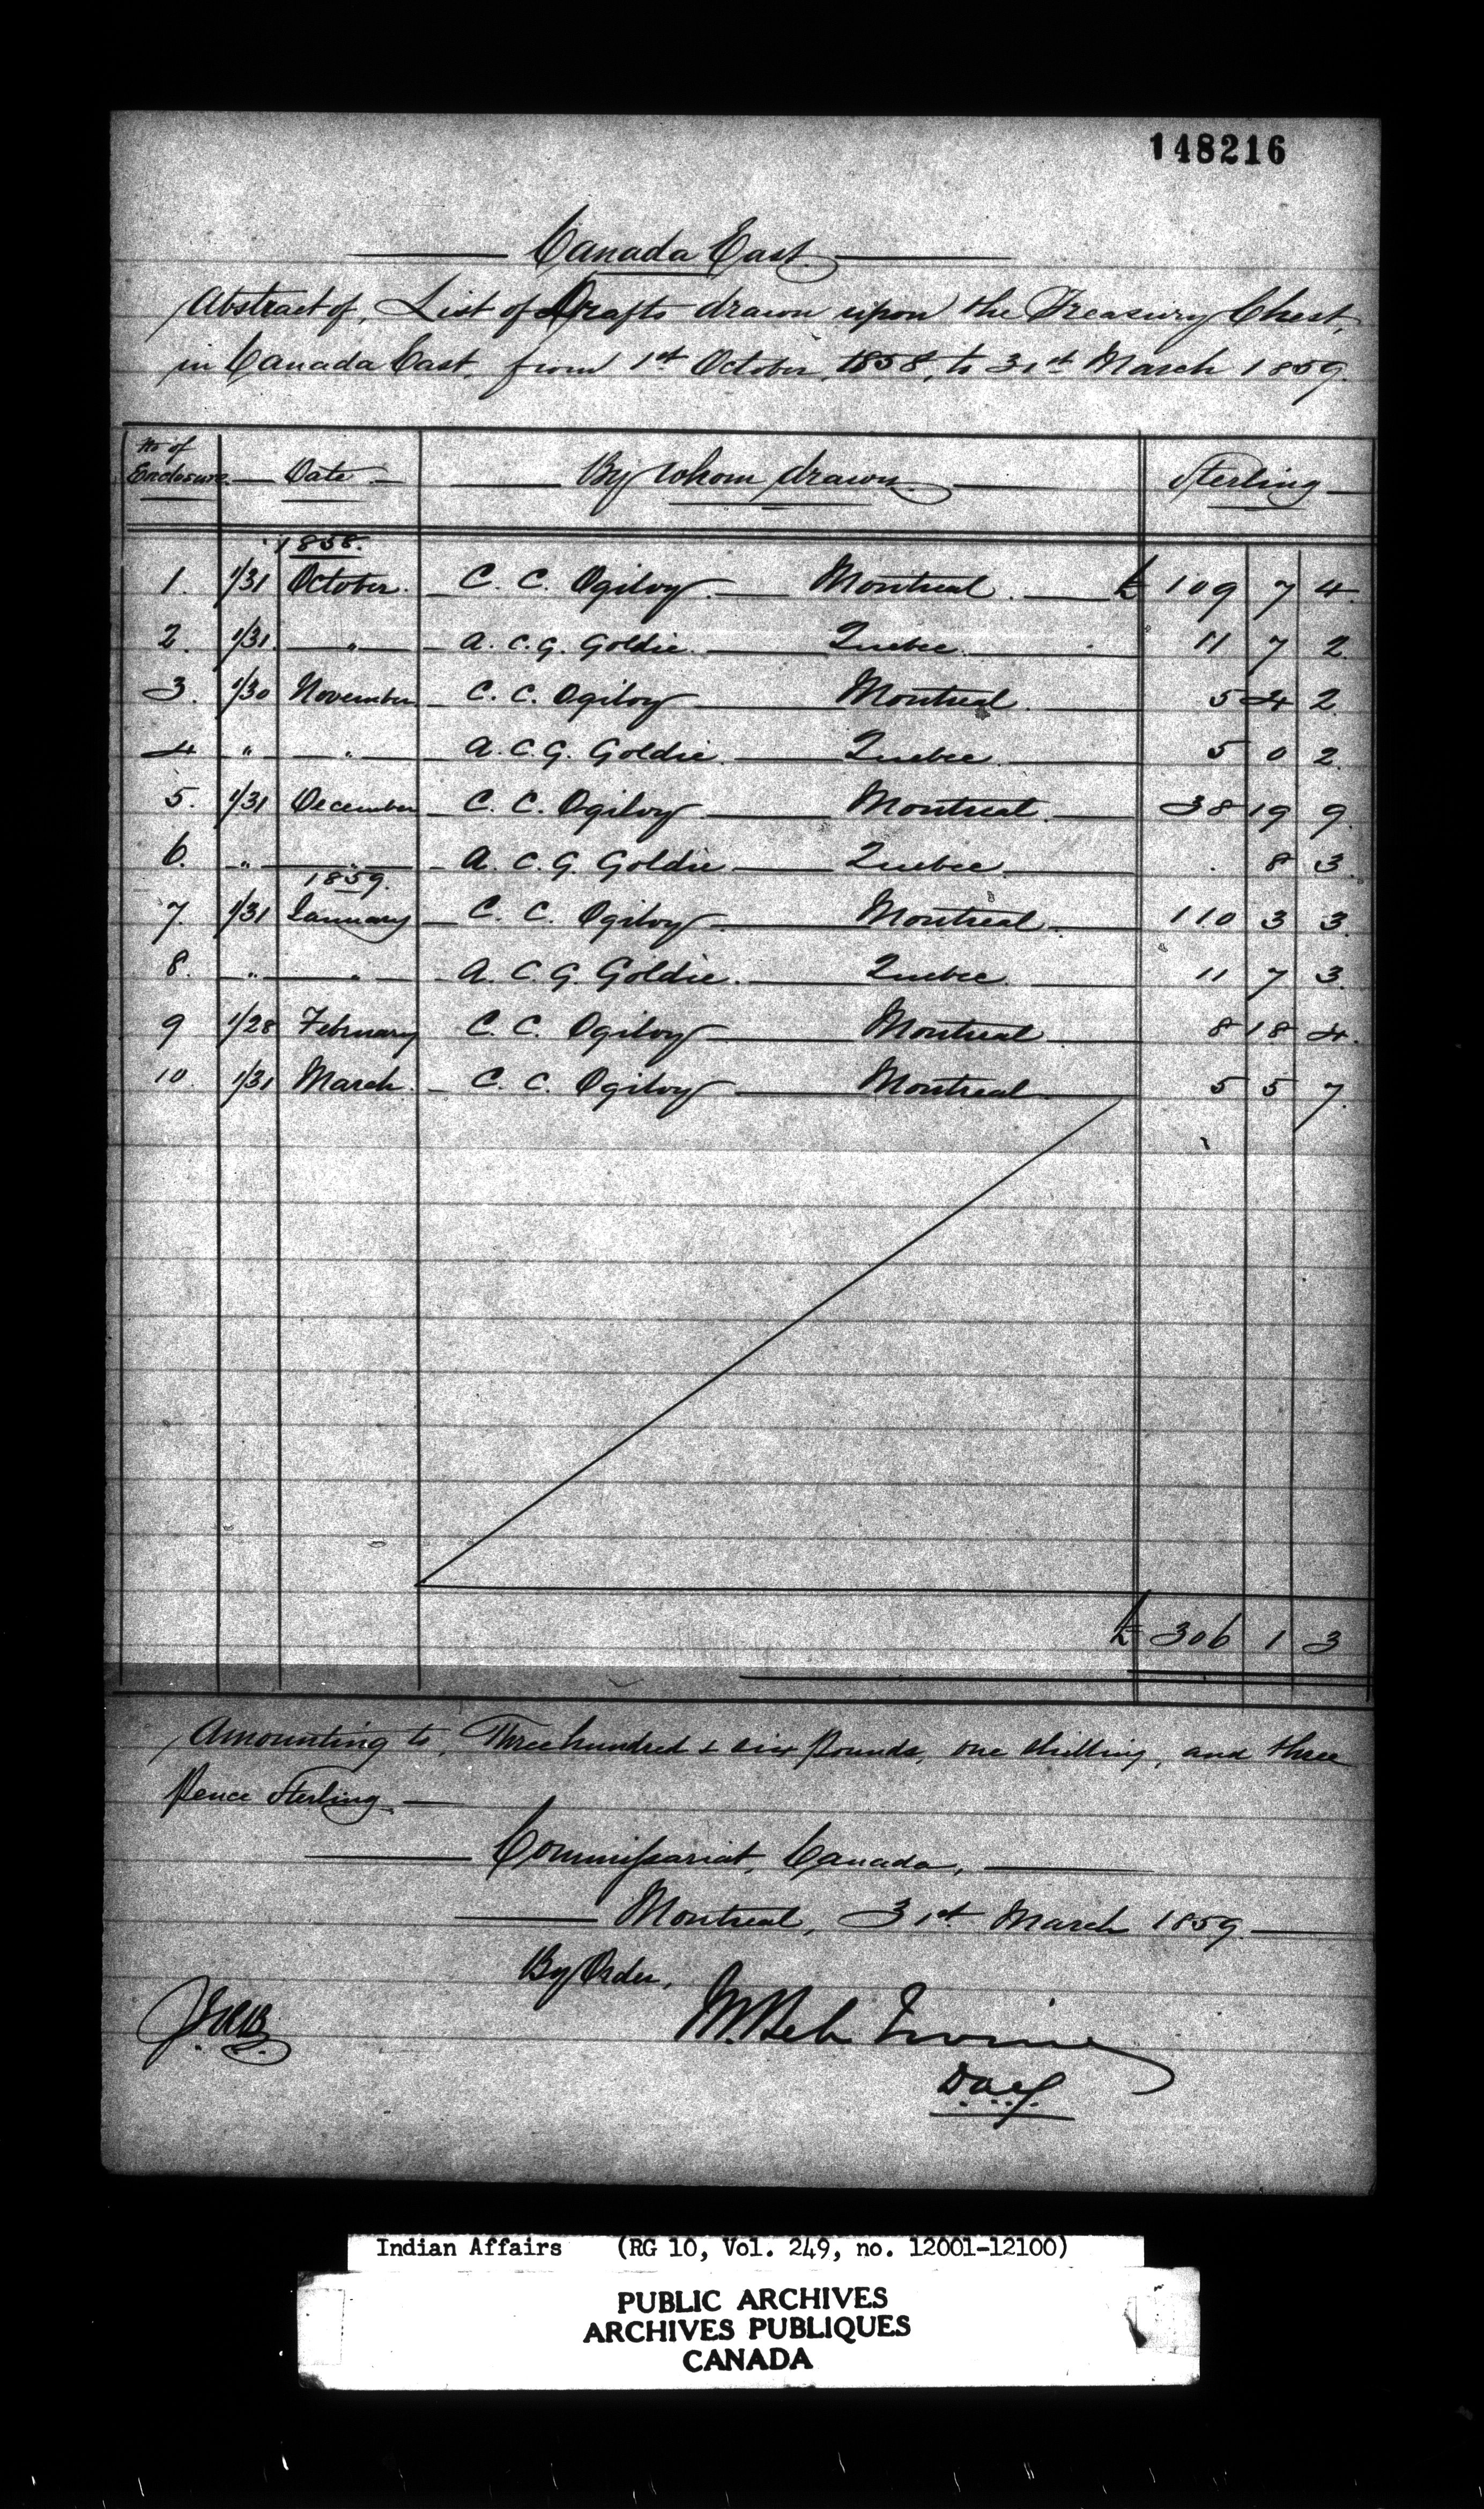 148216
Canada East.
Abstract of, List of Drafts drawn upon the Treasury Chest,
in Canada East, from 1st October, 1858, to 31st March 1859.
No of Enclosure Date By whom drawn. Sterling
1858.
1. 1/31 October. C. C. Ogilvy Montreal. £ 109 7 4.
2. 1/31. " A. C. G. Goldie. Quebec. 11 7 2.
3. 1/30 November C. C. Ogilvy Montreal. 5 4 2.
4 " " A. C. G. Goldie. Quebec. 5 0 2.
5. 1/31 December C. C. Ogilvy Montreal. 38 19 9.
6. " " A. C. G. Goldie Quebec. . 8 3.
1859.
7. 1/31 January C. C. Ogilvy. Montreal. 110 3 3.
8. " " A. C. G. Goldie. Quebec. 11 7 3.
9 1/28 February C. C. Ogilvy Montreal. 8 18 4.
10. 1/31 March. C. C. Ogilvy Montreal 5 5 7.
£ 306 1 3
Amounting to, Three hundred & six Pounds, one shilling, and three
Pence Sterling.
Commissariat, Canada,
Montreal, 31st March 1859.
By Order,
Irvine
D.A.C.G.
Indian Affairs (RG 10, Vol. 249, no. 12001-12100)
PUBLIC ARCHIVES
ARCHIVES PUBLIQUES
CANADA